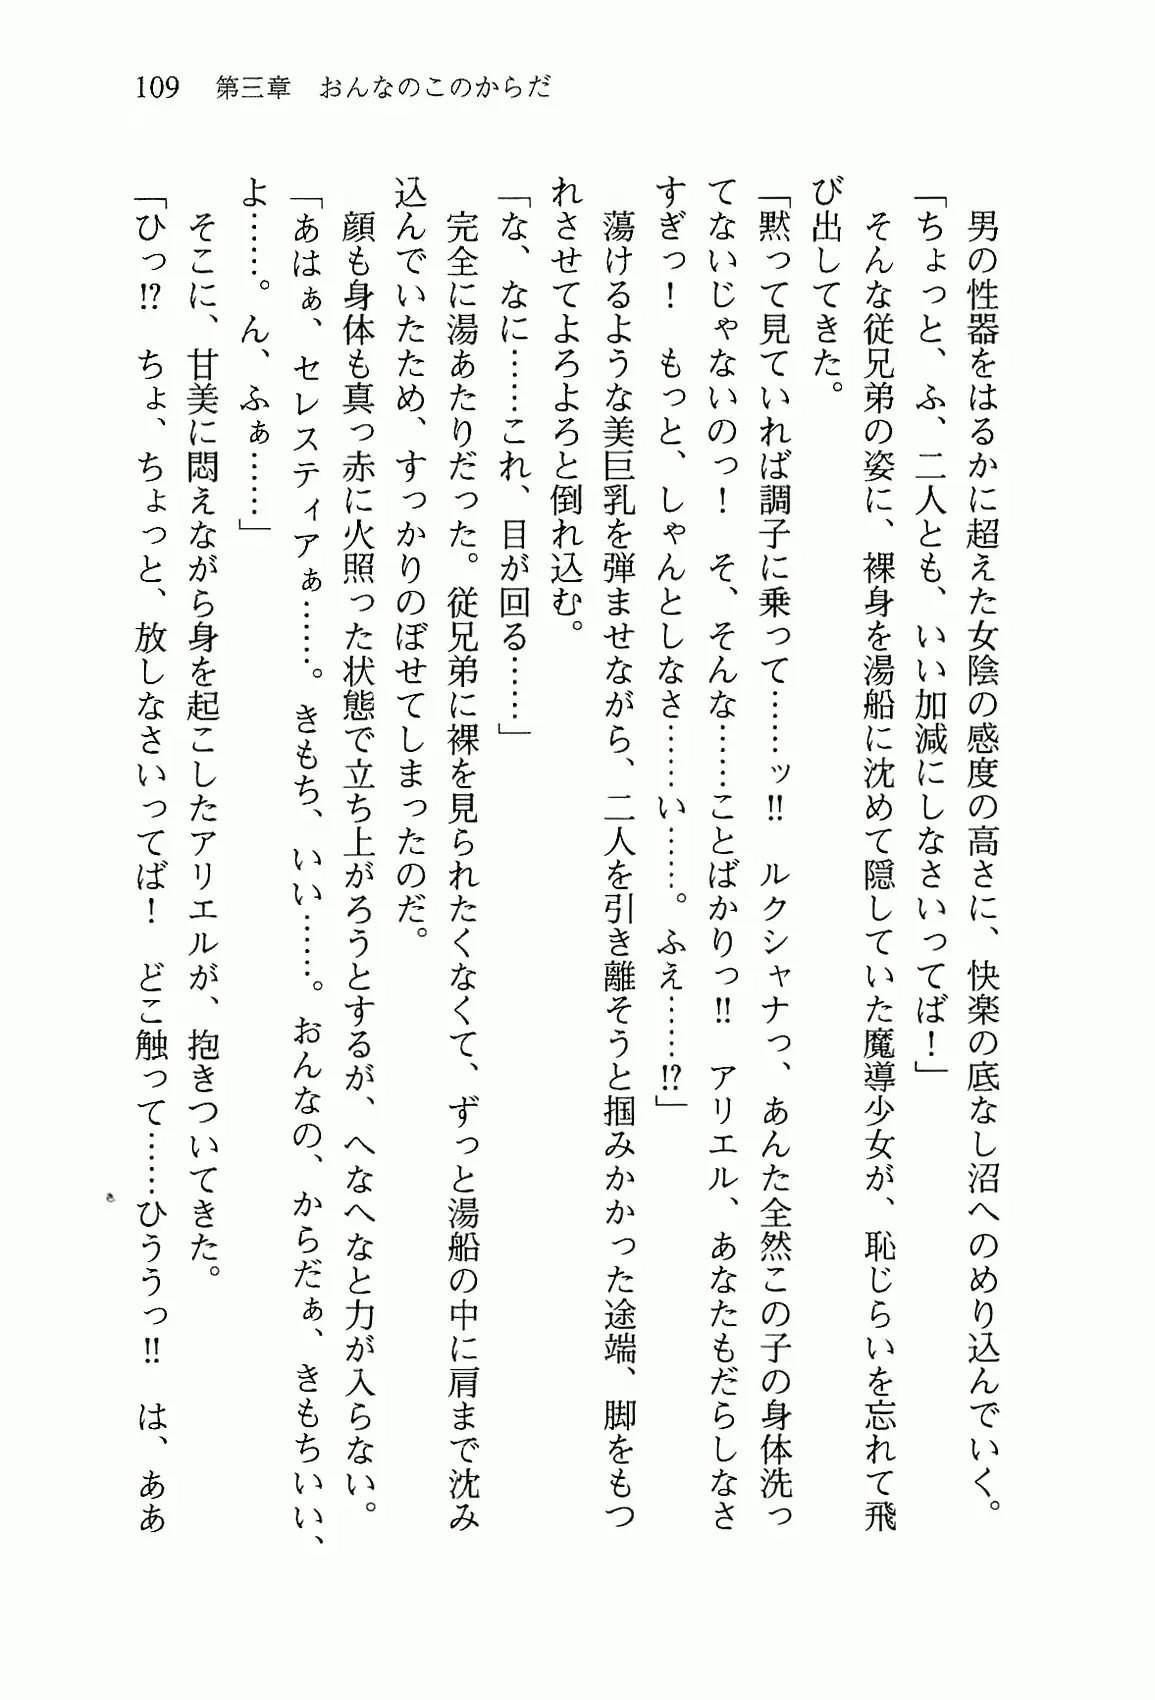 109　第三章　おんなのこのからだ
　男の性器をはるかに超えた女陰の感度の高さに、快楽の底なし沼へのめり込んでいく。
「ちょっと、ふ、二人とも、いい加減にしなさいってば！」
　そんな従兄弟の姿に、裸身を湯船に沈めて隠していた魔導少女が、恥じらいを忘れて飛
び出してきた。
「黙って見ていれば調子に乗って……ッ!!　ルクシャナっ、あんた全然この子の身体洗っ
てないじゃないのっ！　そ、そんな……ことばかりっ!!　アリエル、あなたもだらしなさ
すぎっ！　もっと、しゃんとしなさ……い……。ふえ……!?」
　蕩けるような美巨乳を弾ませながら、二人を引き離そうと掴みかかった途端、脚をもつ
れさせてよろよろと倒れ込む。
「な、なに……これ、目が回る……」
　完全に湯あたりだった。従兄弟に裸を見られたくなくて、ずっと湯船の中に肩まで沈み
込んでいたため、すっかりのぼせてしまったのだ。
　顔も身体も真っ赤に火照った状態で立ち上がろうとするが、へなへなと力が入らない。
「あはぁ、セレスティアぁ……。きもち、いい……。おんなの、からだぁ、きもちいい、
よ……。ん、ふぁ……」
　そこに、甘美に悶えながら身を起こしたアリエルが、抱きついてきた。
「ひっ!?　ちょ、ちょっと、放しなさいってば！　どこ触って……ひううっ!!　は、ああ